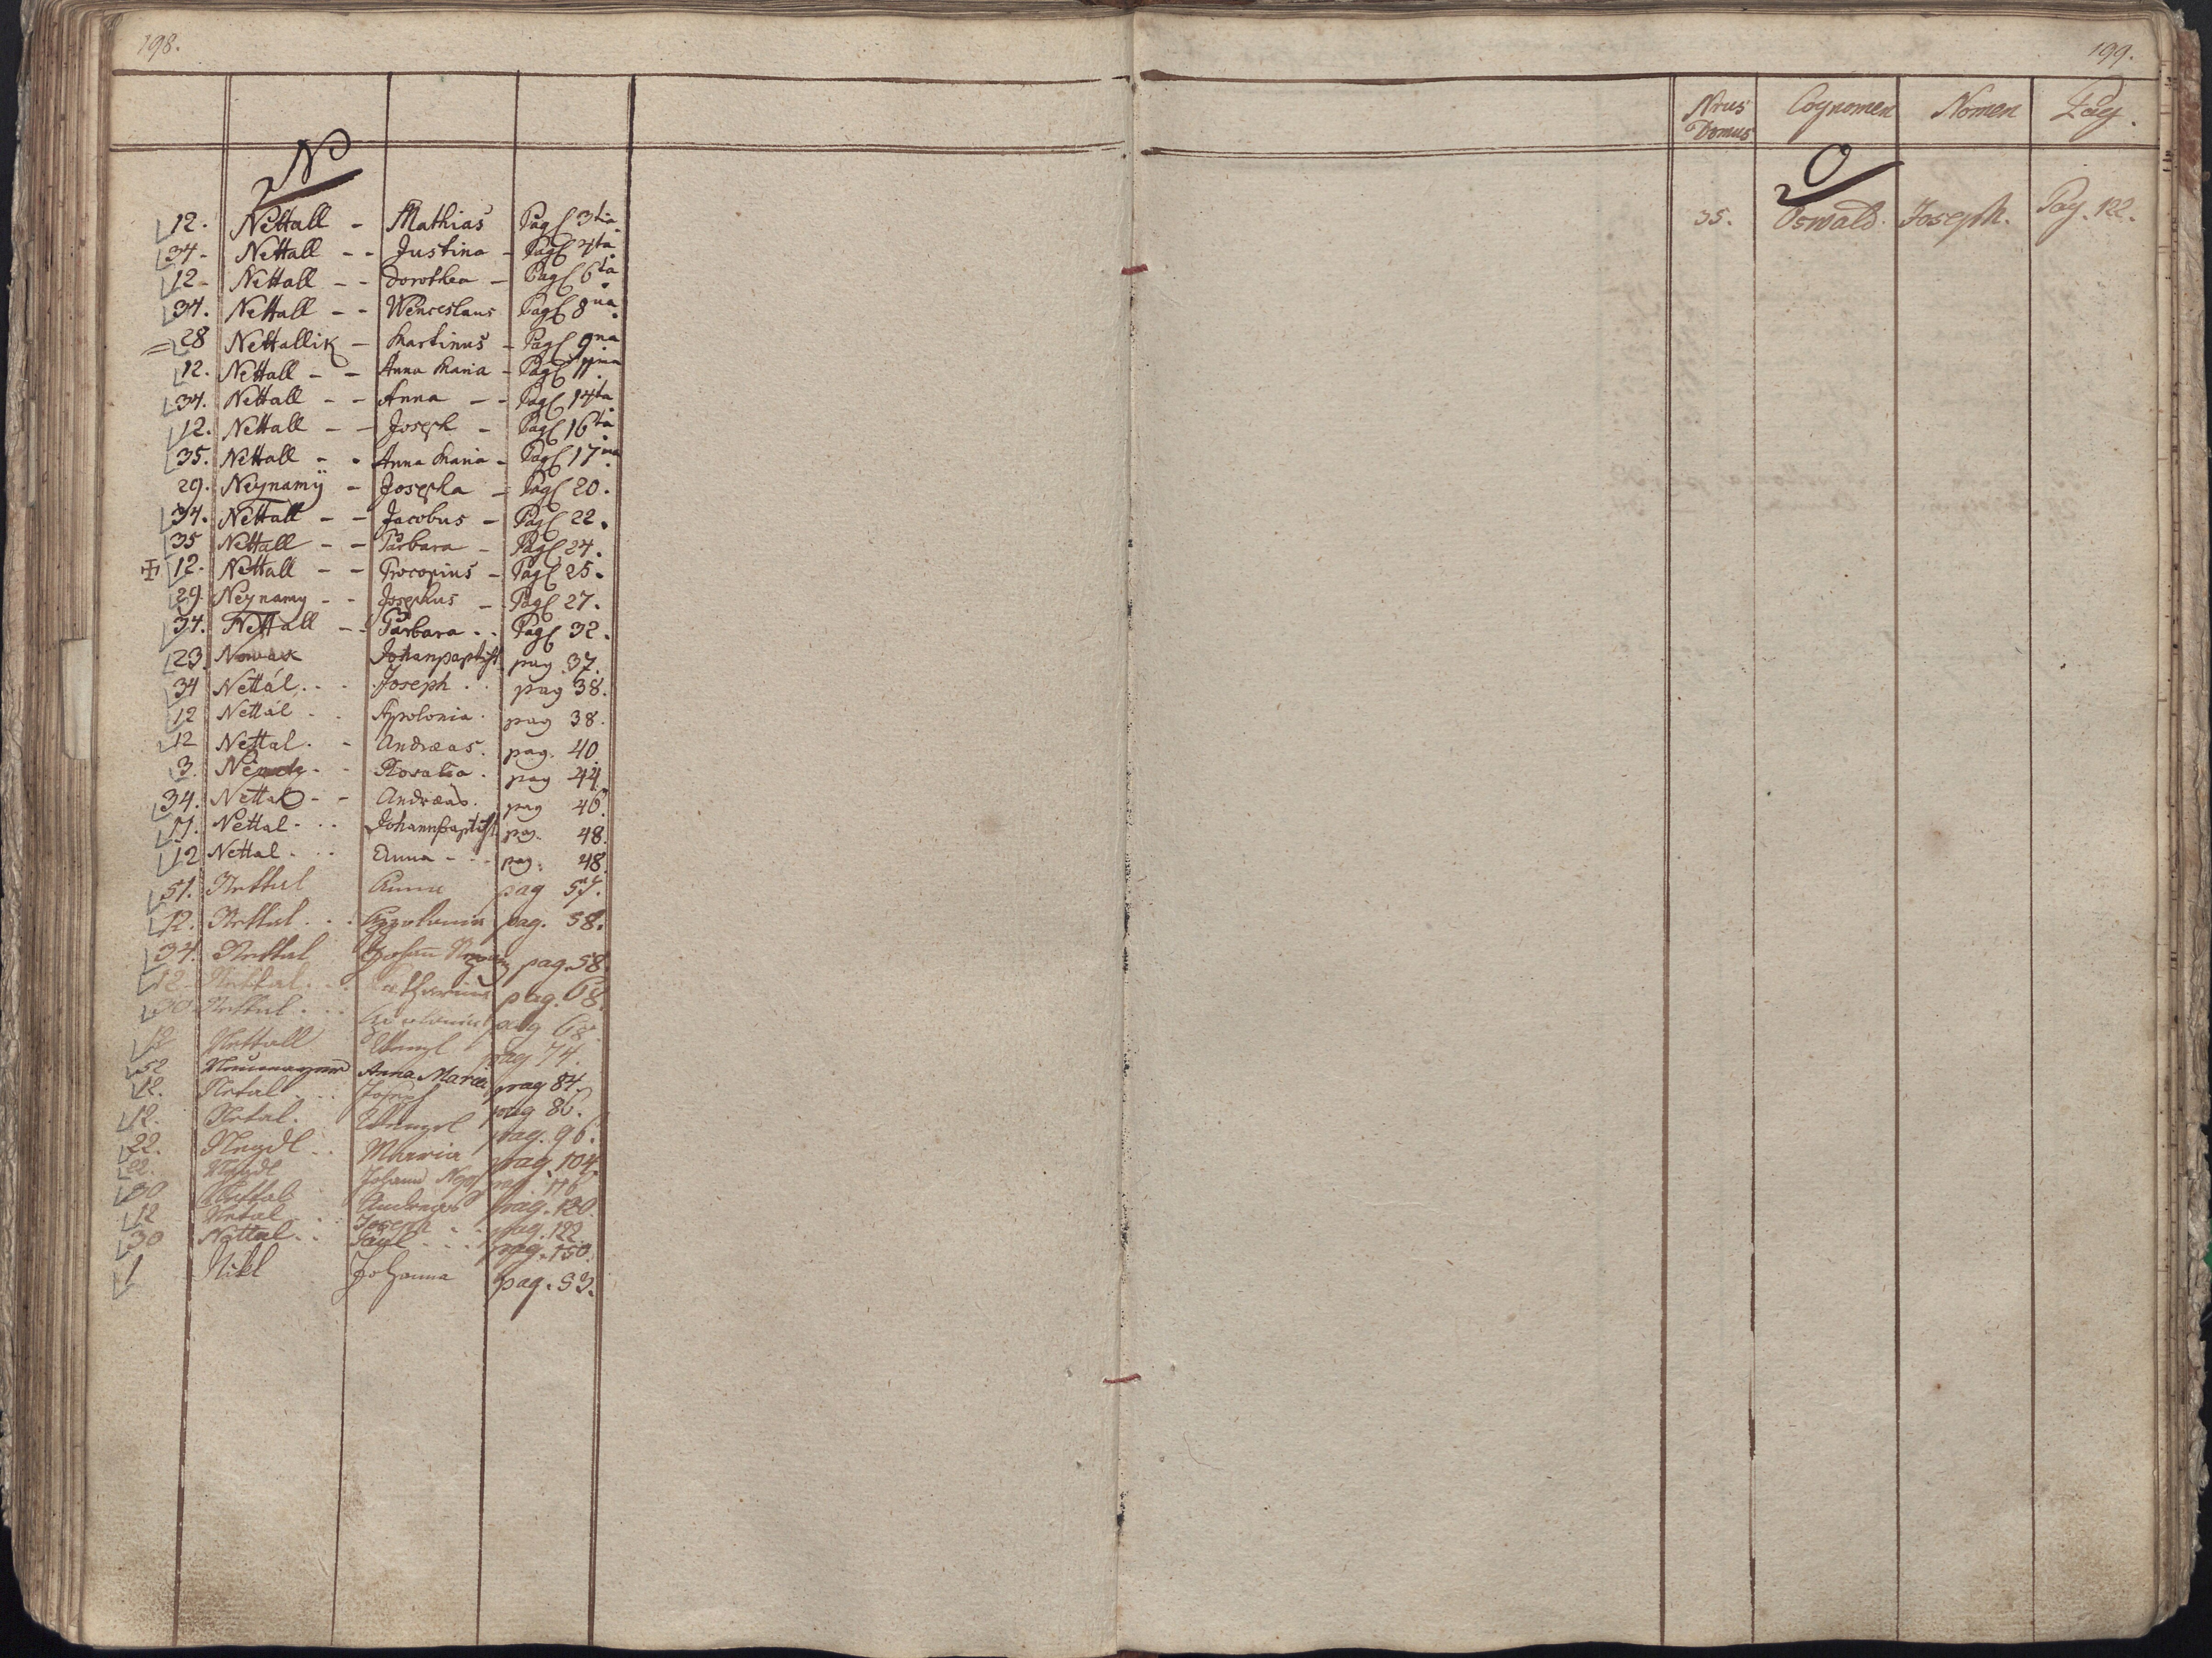 198.
N
12. Nettall - Mathias Pag 3tia.
34. Nettall - - Justina - Pag 4ta.
12. Nettall - - Dorothea - Pag 6ta.
34. Nettall - - Wenceslaus Pag 8va.
28 Nettallik - Martinus - Pag 9na
12. Nettall - - Anna Maria - Pag 11ma.
34. Nettall - - Anna - - Pag 14ta.
12. Nettall - - Joseph - Pag 16ta.
35. Nettall - - Anna Maria - Pag 17ma.
29. Neynamÿ - Josepha - Pag 20.
34. Nettall - - Jacobus - Pag 22.
35 Nettall - - Barbara - Pag 24.
12. Nettall - - Procopius - Pag 25.
29. Neynamy - - Josephus - Pag 27.
34. Nettall - - Barbara . . Pag 32.
23. Nowak Johanpaptist pag 37.
34 Nettál . . . Joseph . . pag 38.
12 Nettál . . Apolonia . pag 38.
12 Nettal . - Andreas . pag. 40.
3. - - Rosalia . pag 44.
34. Nettal - - Andreas . pag 46.
Nettal - . . Johannbaptist pag. 48.
12 Nettal - . . Anna - . . pag. 48.
51. Nettal Anna pag 57.
12. Nettal . . . Appolonia pag. 58.
34. Nettal Johan pag. 58.
12. Nettal . . . Catharina pag. 68.
30. Nettal . . . pag 68.
12 Nettall Wenzl pag 74.
52 Anna Maria pag 84.
12. Netal . . . Joseph pag 86.
12. Netal . Wenzel pag. 96.
22. Neydl . . Maria pag. 104.
22. Neydl Johann Nep pag. 116
30 Nettal Andreas pag. 120.
12 Netal . . Joseph . . pag. 122.
30 Nettal . . Paul . . . pag. 150.
1 Nikl Johanna pag. 53.
199.
Nrus Domus Cognomen Nomen Pag.
O
35. Oswald. Joseph. Pag. 122.